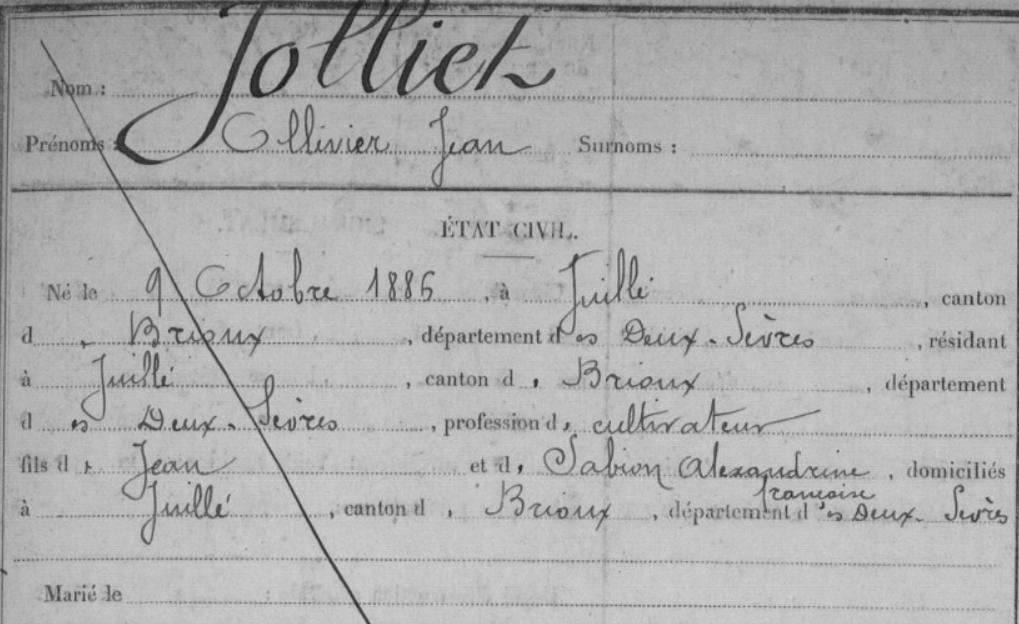 Nom : Jolliet
Prénoms : Ollivier Jean Surnoms :
ÉTAT CIVIL.
Né le 9 Octobre 1886, à Juillé, canton
de Brioux, département des Deux-Sèvres, résidant
à Juillé, canton de Brioux, département
des Deux-Sèvres, profession de cultivateur
fils de Jean et de Sabion Alexandrine, domiciliés
française
à Juillé, canton de Brioux, département des Deux-Sèvres
Marié le